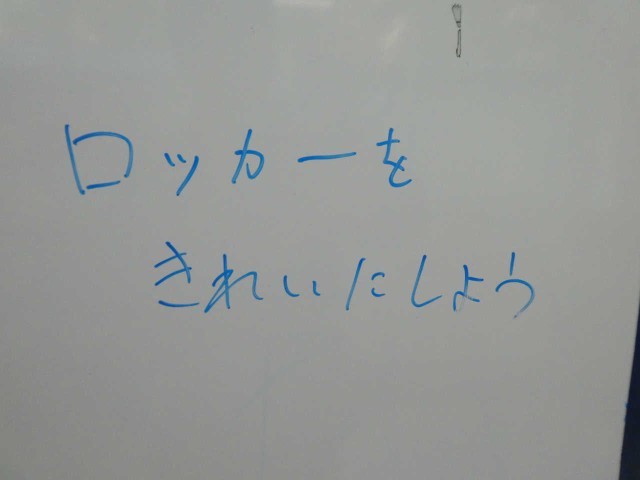 ロッカーを
きれいにしよう